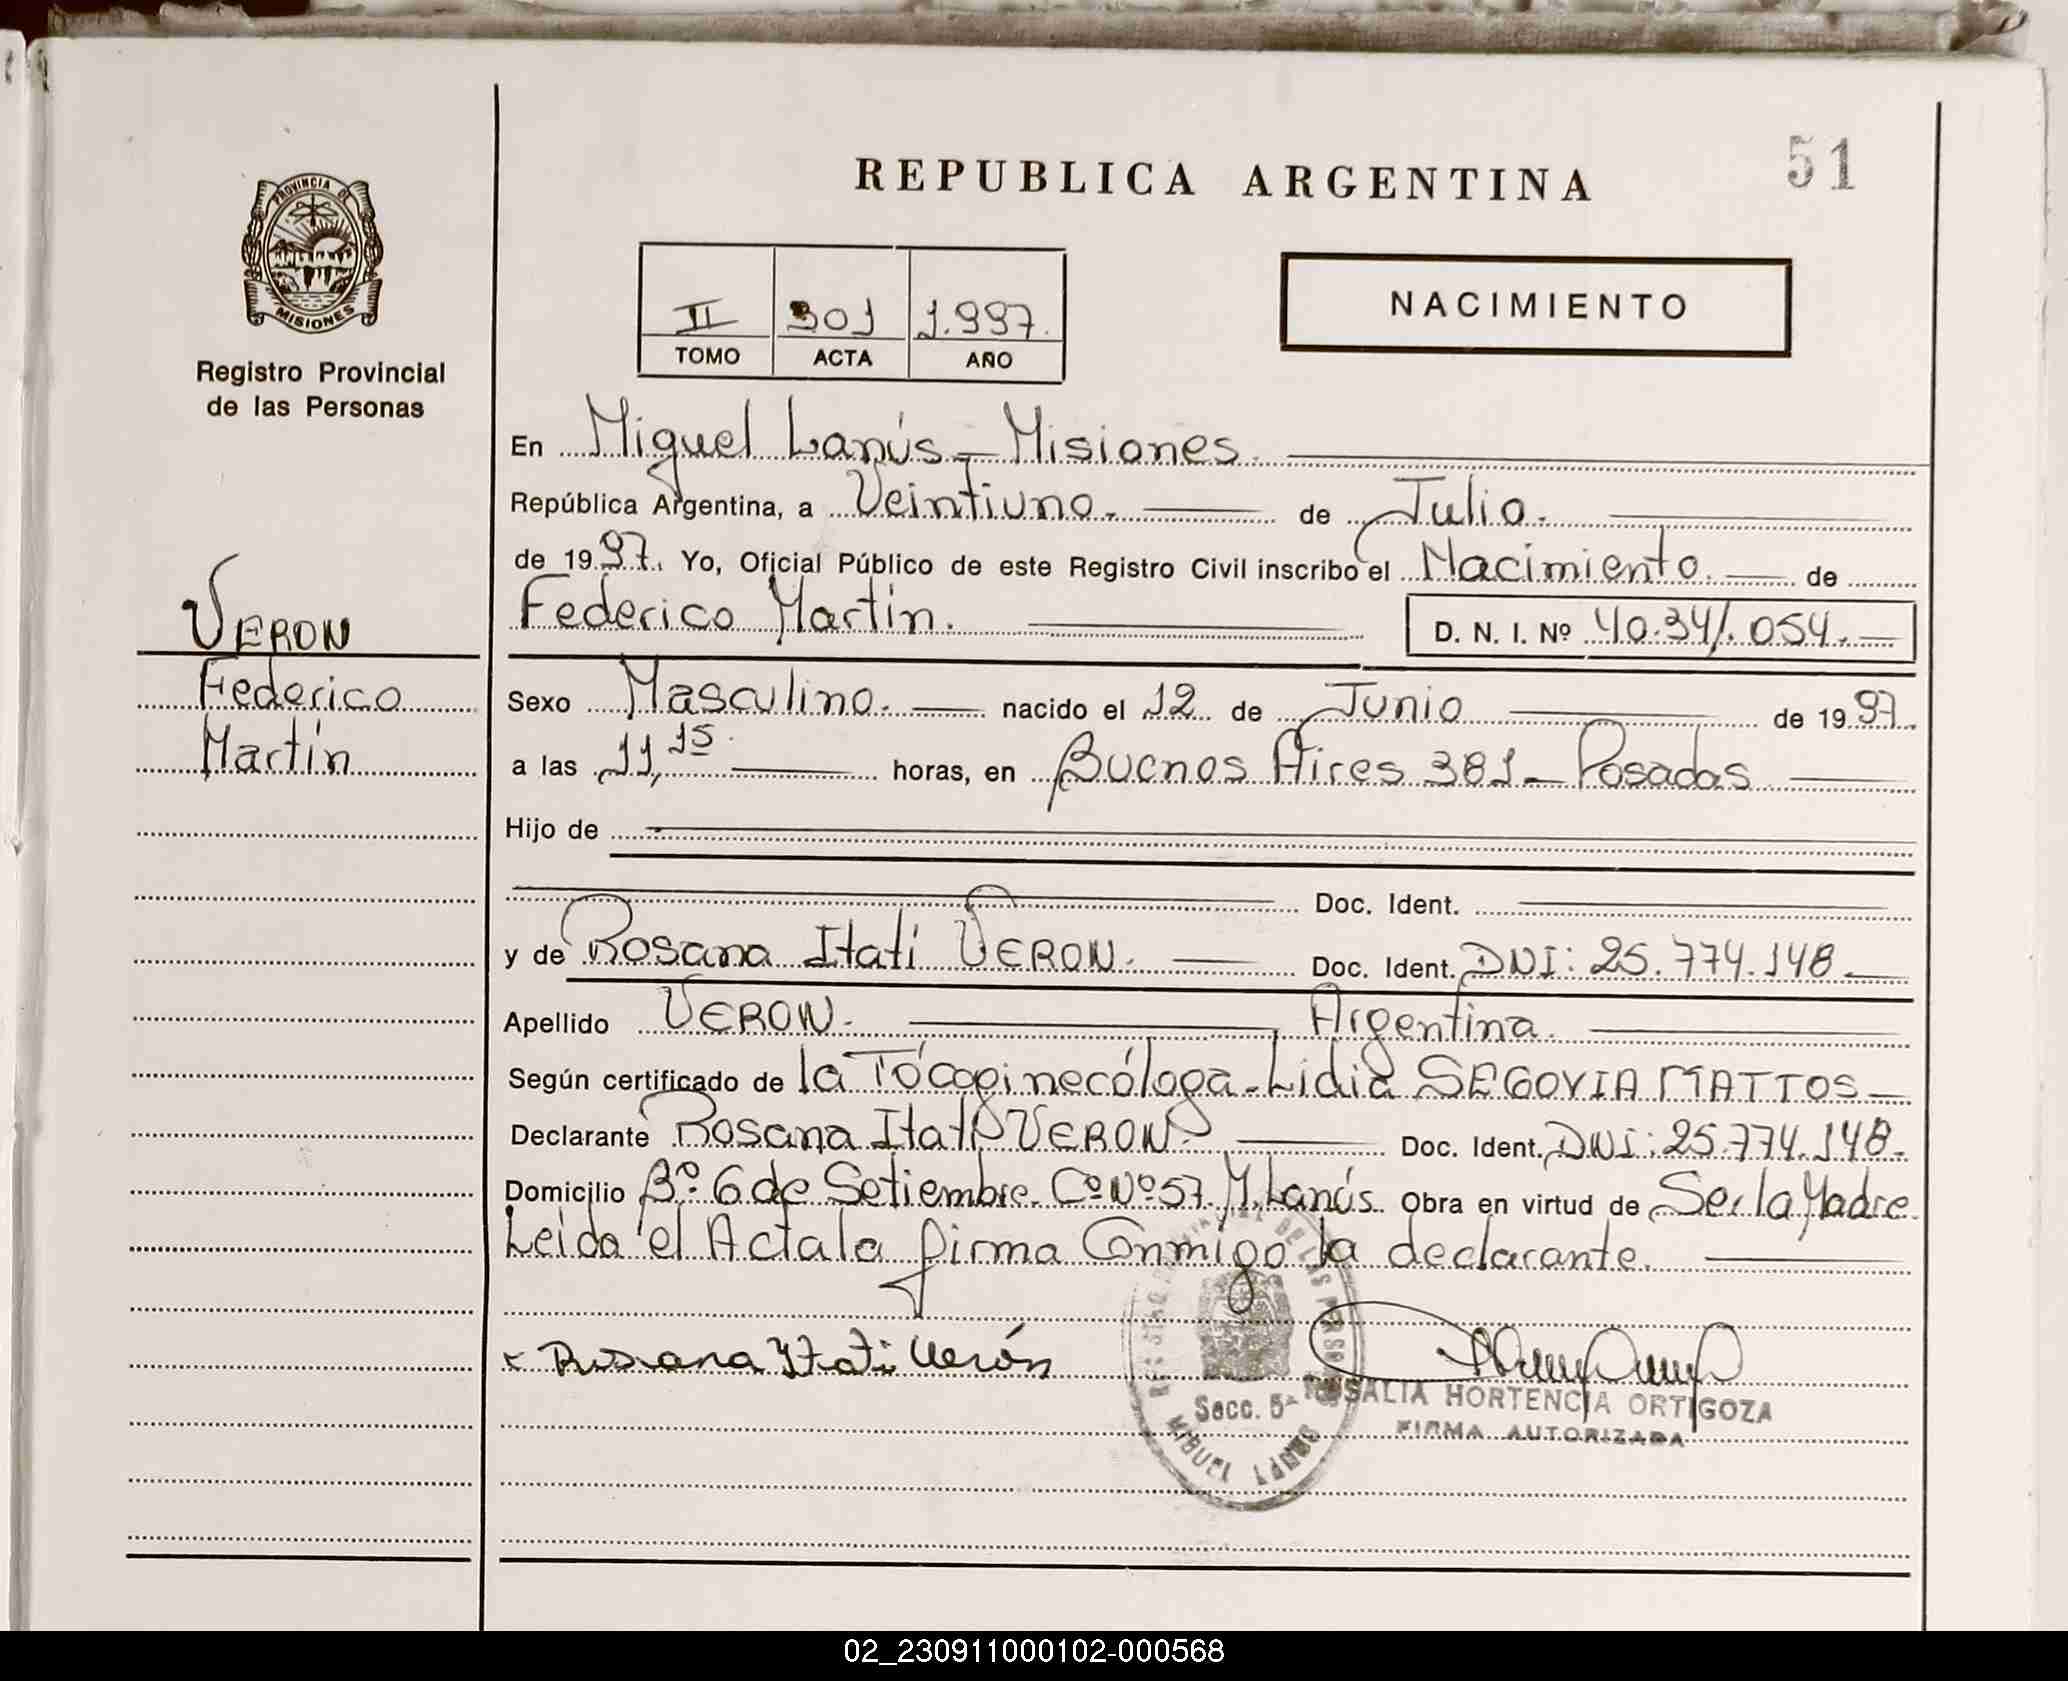 51
REPUBLICA ARGENTINA
PROVINCIA DE
MISIONES
Registro Provincial
de las Personas
II 301 1.997.
TOMO ACTA AÑO
NACIMIENTO
En Miguel Lanús - Misiones.
República Argentina, a Veintiuno. de Julio.
de 1997. Yo, Oficial Público de este Registro Civil inscribo el Nacimiento. de
Federico Martín. D. N. I. Nº 40.341.054.
VERON
Federico
Martín
Sexo Masculino. nacido el 12 de Junio de 1997.
a las 11,15. horas, en Buenos Aires 381 - Posadas
Hijo de
Doc. Ident.
y de Rosana Itatí VERON. Doc. Ident. DNI: 25.774.148
Apellido VERON. Argentina.
Según certificado de la Tócoginecóloga - Lidia SEGOVIA MATTOS
Declarante Rosana Itatí VERON. Doc. Ident. DNI: 25.774.148.
Domicilio Bº 6 de Setiembre. Cº Nº 57. M. Lanús. Obra en virtud de Ser la Madre.
Leida el Acta la firma Conmigo la declarante.
x Rosana Itatí Verón
Secc. 5ª
ROSALIA HORTENCIA ORTIGOZA
FIRMA AUTORIZADA
02_230911000102-000568